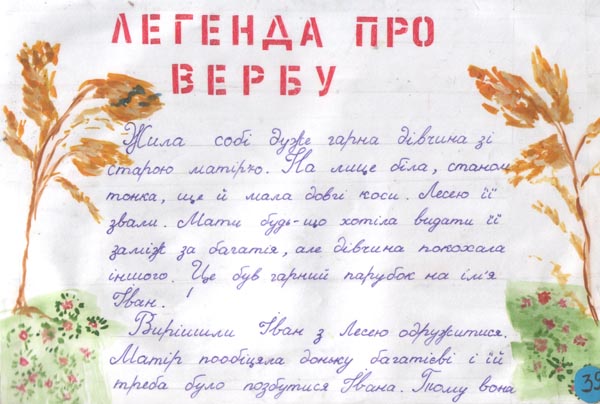 ЛЕГЕНДА ПРО
ВЕРБУ
Жила собі дуже гарна дівчина зі
старою матір'ю. На лице біла, станом
тонка, ще й мала довгі коси. Лесею її
звали. Мати будь-що хотіла видати її
заміж за багатія, але дівчина покохала
іншого. Це був гарний парубок на ім'я
Іван.
Вирішили Іван з Лесею одружитися.
Матір пообіцяла доньку багатієві і їй
треба було позбутися Івана. Тому вона
39